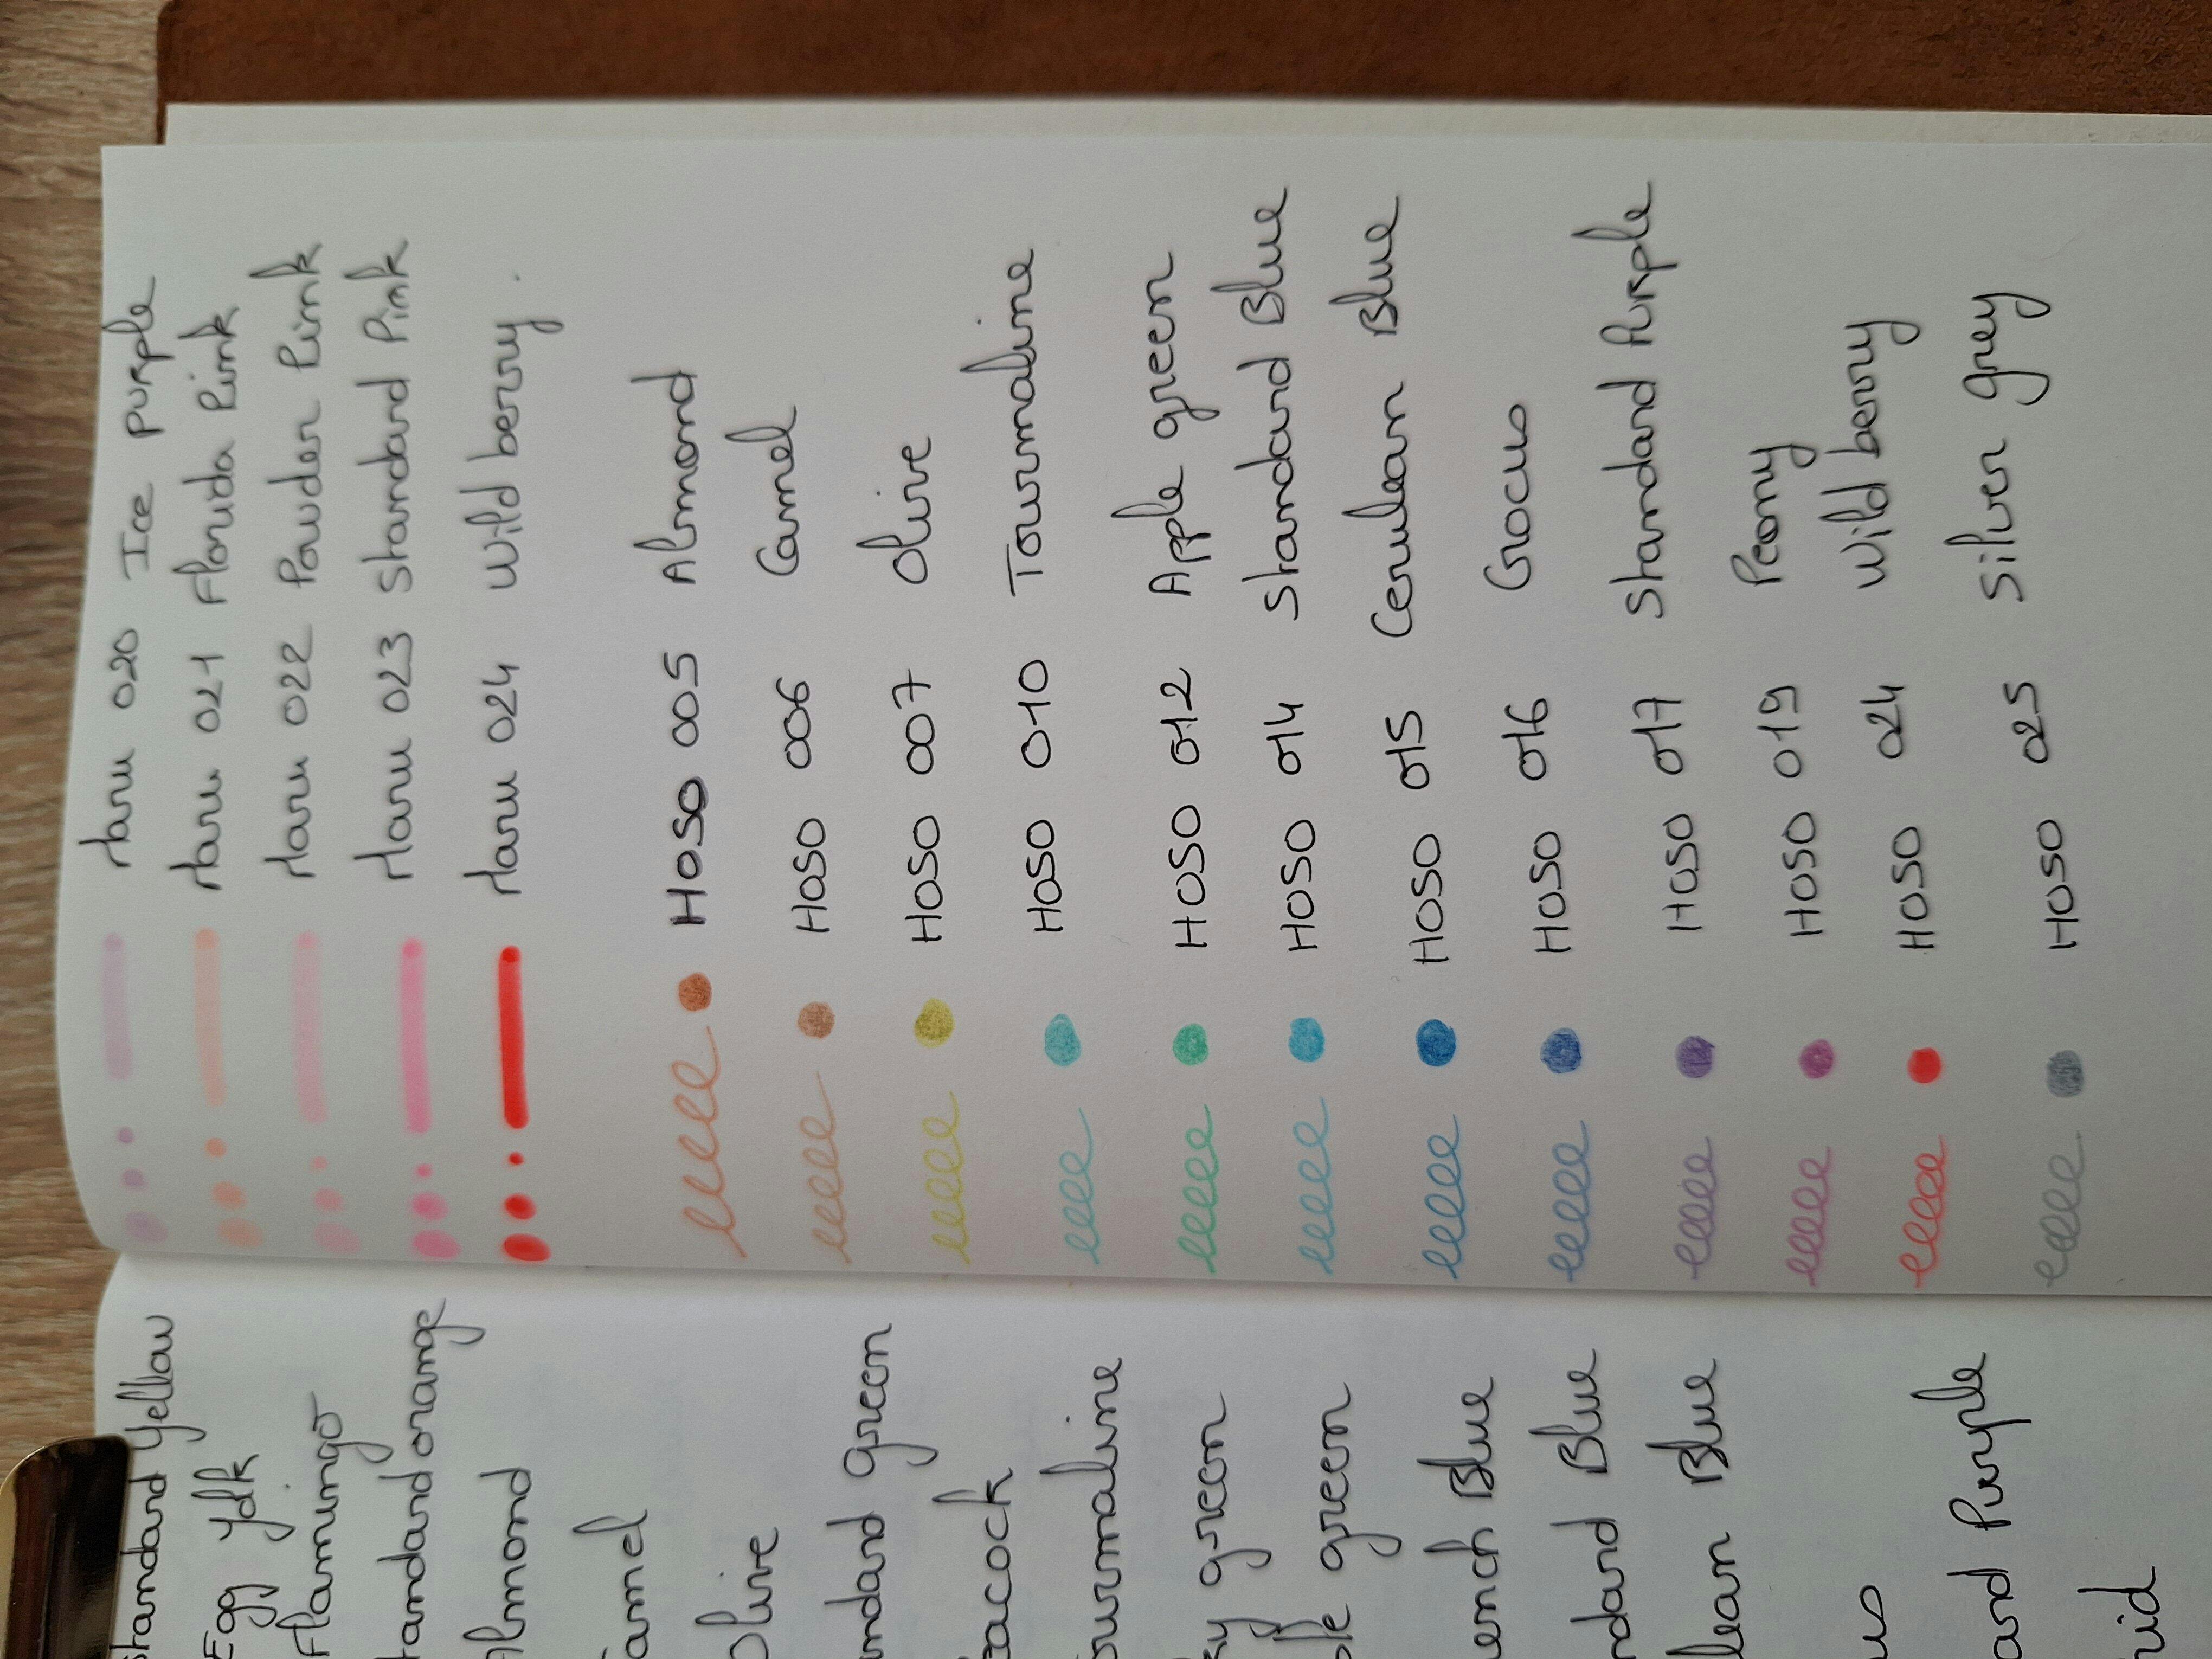 Standard Yellow
Egg yolk
Flamingo
tandard orange
Almond
amel
Olive
ndard green
eacock
ourmaline
green
ple green
ench Blue
ndard Blue
lean Blue
us
ard Purple
hid
Maru 020 Ice purple
Maru 021 Florida Pink
Maru 022 Powder Pink
Maru 023 Standard Pink
Maru 024 Wild berry.
HOSO 005 Almond
HOSO 006 Camel
HOSO 007 Olive
HOSO 010 Tourmaline
HOSO 012 Apple green
HOSO 014 Standard Blue
HOSO 015 Cerulean Blue
HOSO 016 Crocus
HOSO 017 Standard Purple
HOSO 019 Peony
HOSO 024 Wild berry
HOSO 025 Silver grey